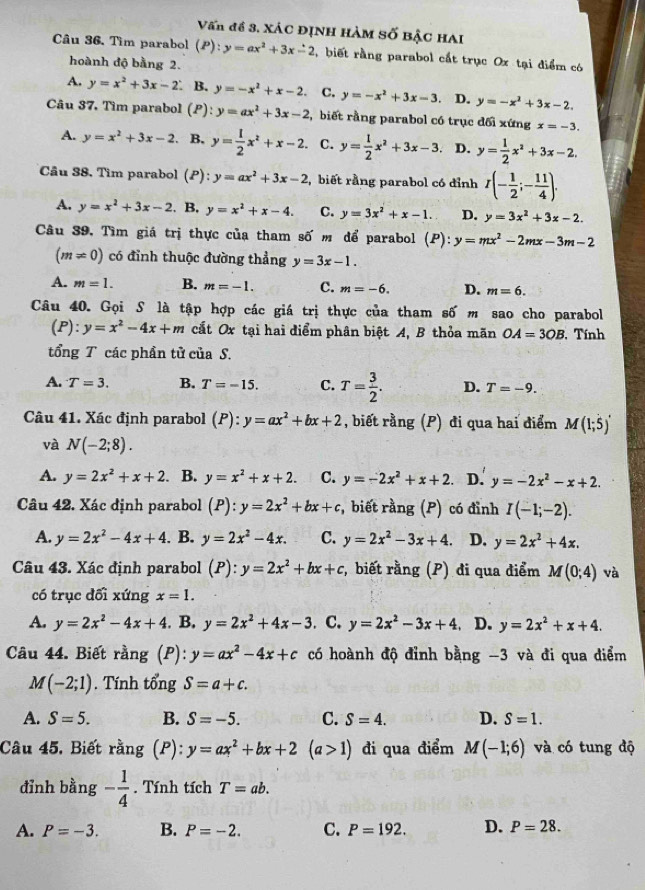 Vấn đề 3. XÁC ĐỊNH HÀM SỐ BẬC HAI
Câu 36. Tìm parabol (P): y = ax² + 3x - 2, biết rằng parabol cắt trục Ox tại điểm có
hoành độ bằng 2.
A. y = x² + 3x - 2. B. y = -x² + x - 2. C. y = -x² + 3x - 3. D. y = -x² + 3x - 2.
Câu 37. Tìm parabol (P): y = ax² + 3x - 2, biết rằng parabol có trục đối xứng x = -3.
A. y = x² + 3x - 2. B. y = 1/2 x² + x - 2. C. y = 1/2 x² + 3x - 3. D. y = 1/2 x² + 3x - 2.
Câu 38. Tìm parabol (P): y = ax² + 3x - 2, biết rằng parabol có đỉnh I(-1/2; -11/4).
A. y = x² + 3x - 2. B. y = x² + x - 4. C. y = 3x² + x - 1. D. y = 3x² + 3x - 2.
Câu 39. Tìm giá trị thực của tham số m để parabol (P): y = mx² - 2mx - 3m - 2
(m ≠ 0) có đỉnh thuộc đường thẳng y = 3x - 1.
A. m = 1. B. m = -1. C. m = -6. D. m = 6.
Câu 40. Gọi S là tập hợp các giá trị thực của tham số m sao cho parabol
(P): y = x² - 4x + m cắt Ox tại hai điểm phân biệt A, B thỏa mãn OA = 3OB. Tính
tổng T các phần tử của S.
A. T = 3. B. T = -15. C. T = 3/2. D. T = -9.
Câu 41. Xác định parabol (P): y = ax² + bx + 2, biết rằng (P) đi qua hai điểm M(1;5)
và N(-2;8).
A. y = 2x² + x + 2. B. y = x² + x + 2. C. y = -2x² + x + 2. D. y = -2x² - x + 2.
Câu 42. Xác định parabol (P): y = 2x² + bx + c, biết rằng (P) có đỉnh I(-1;-2).
A. y = 2x² - 4x + 4. B. y = 2x² - 4x. C. y = 2x² - 3x + 4. D. y = 2x² + 4x.
Câu 43. Xác định parabol (P): y = 2x² + bx + c, biết rằng (P) đi qua điểm M(0;4) và
có trục đối xứng x = 1.
A. y = 2x² - 4x + 4. B. y = 2x² + 4x - 3. C. y = 2x² - 3x + 4. D. y = 2x² + x + 4.
Câu 44. Biết rằng (P): y = ax² - 4x + c có hoành độ đỉnh bằng -3 và đi qua điểm
M(-2;1). Tính tổng S = a + c.
A. S = 5. B. S = -5. C. S = 4. D. S = 1.
Câu 45. Biết rằng (P): y = ax² + bx + 2 (a > 1) đi qua điểm M(-1;6) và có tung độ
đỉnh bằng -1/4. Tính tích T = ab.
A. P = -3. B. P = -2. C. P = 192. D. P = 28.